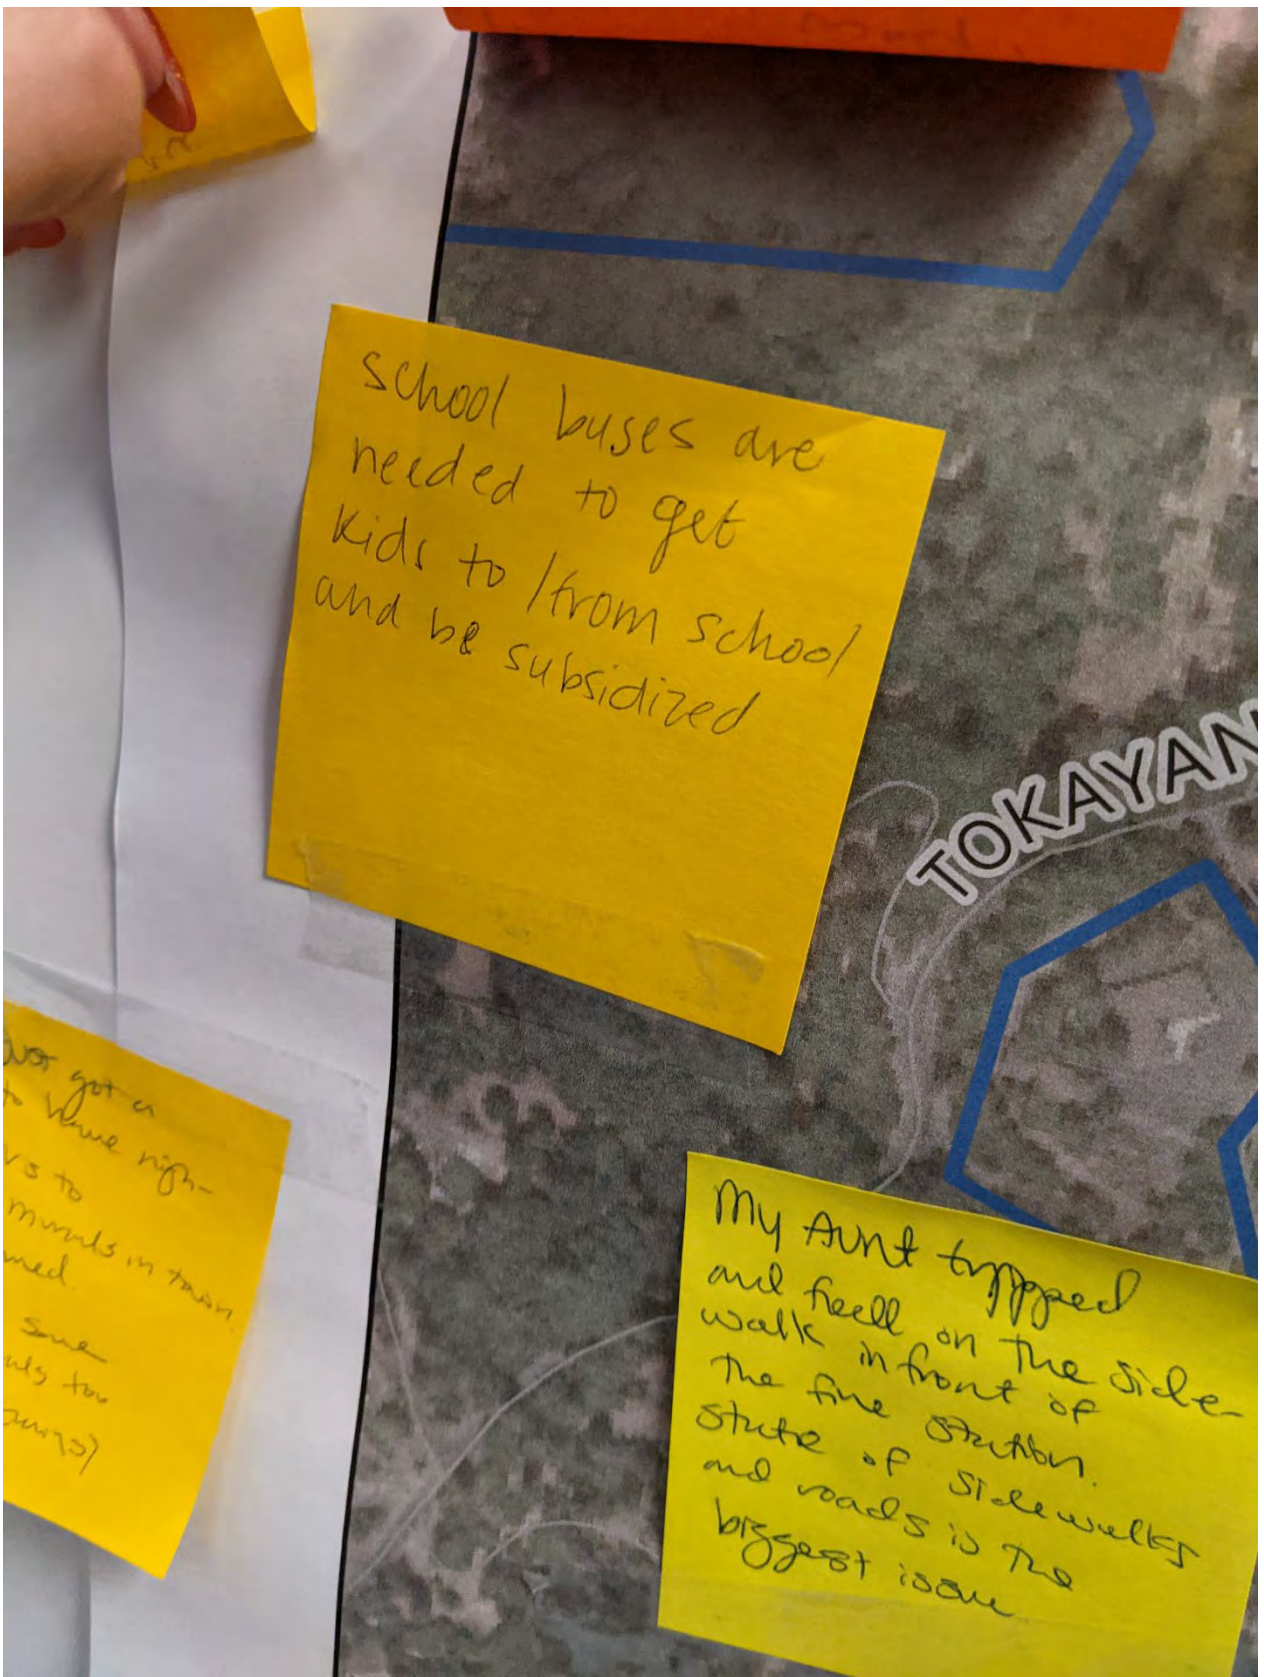 school buses are
needed to get
kids to/from school
and be subsidized
TOKAYAN
got a
to have nigh-
to
murals in town.
sue
My Aunt tripped
and fell on the side-
walk in front of
the fire station.
state of sidewalks
and roads is the
biggest issue